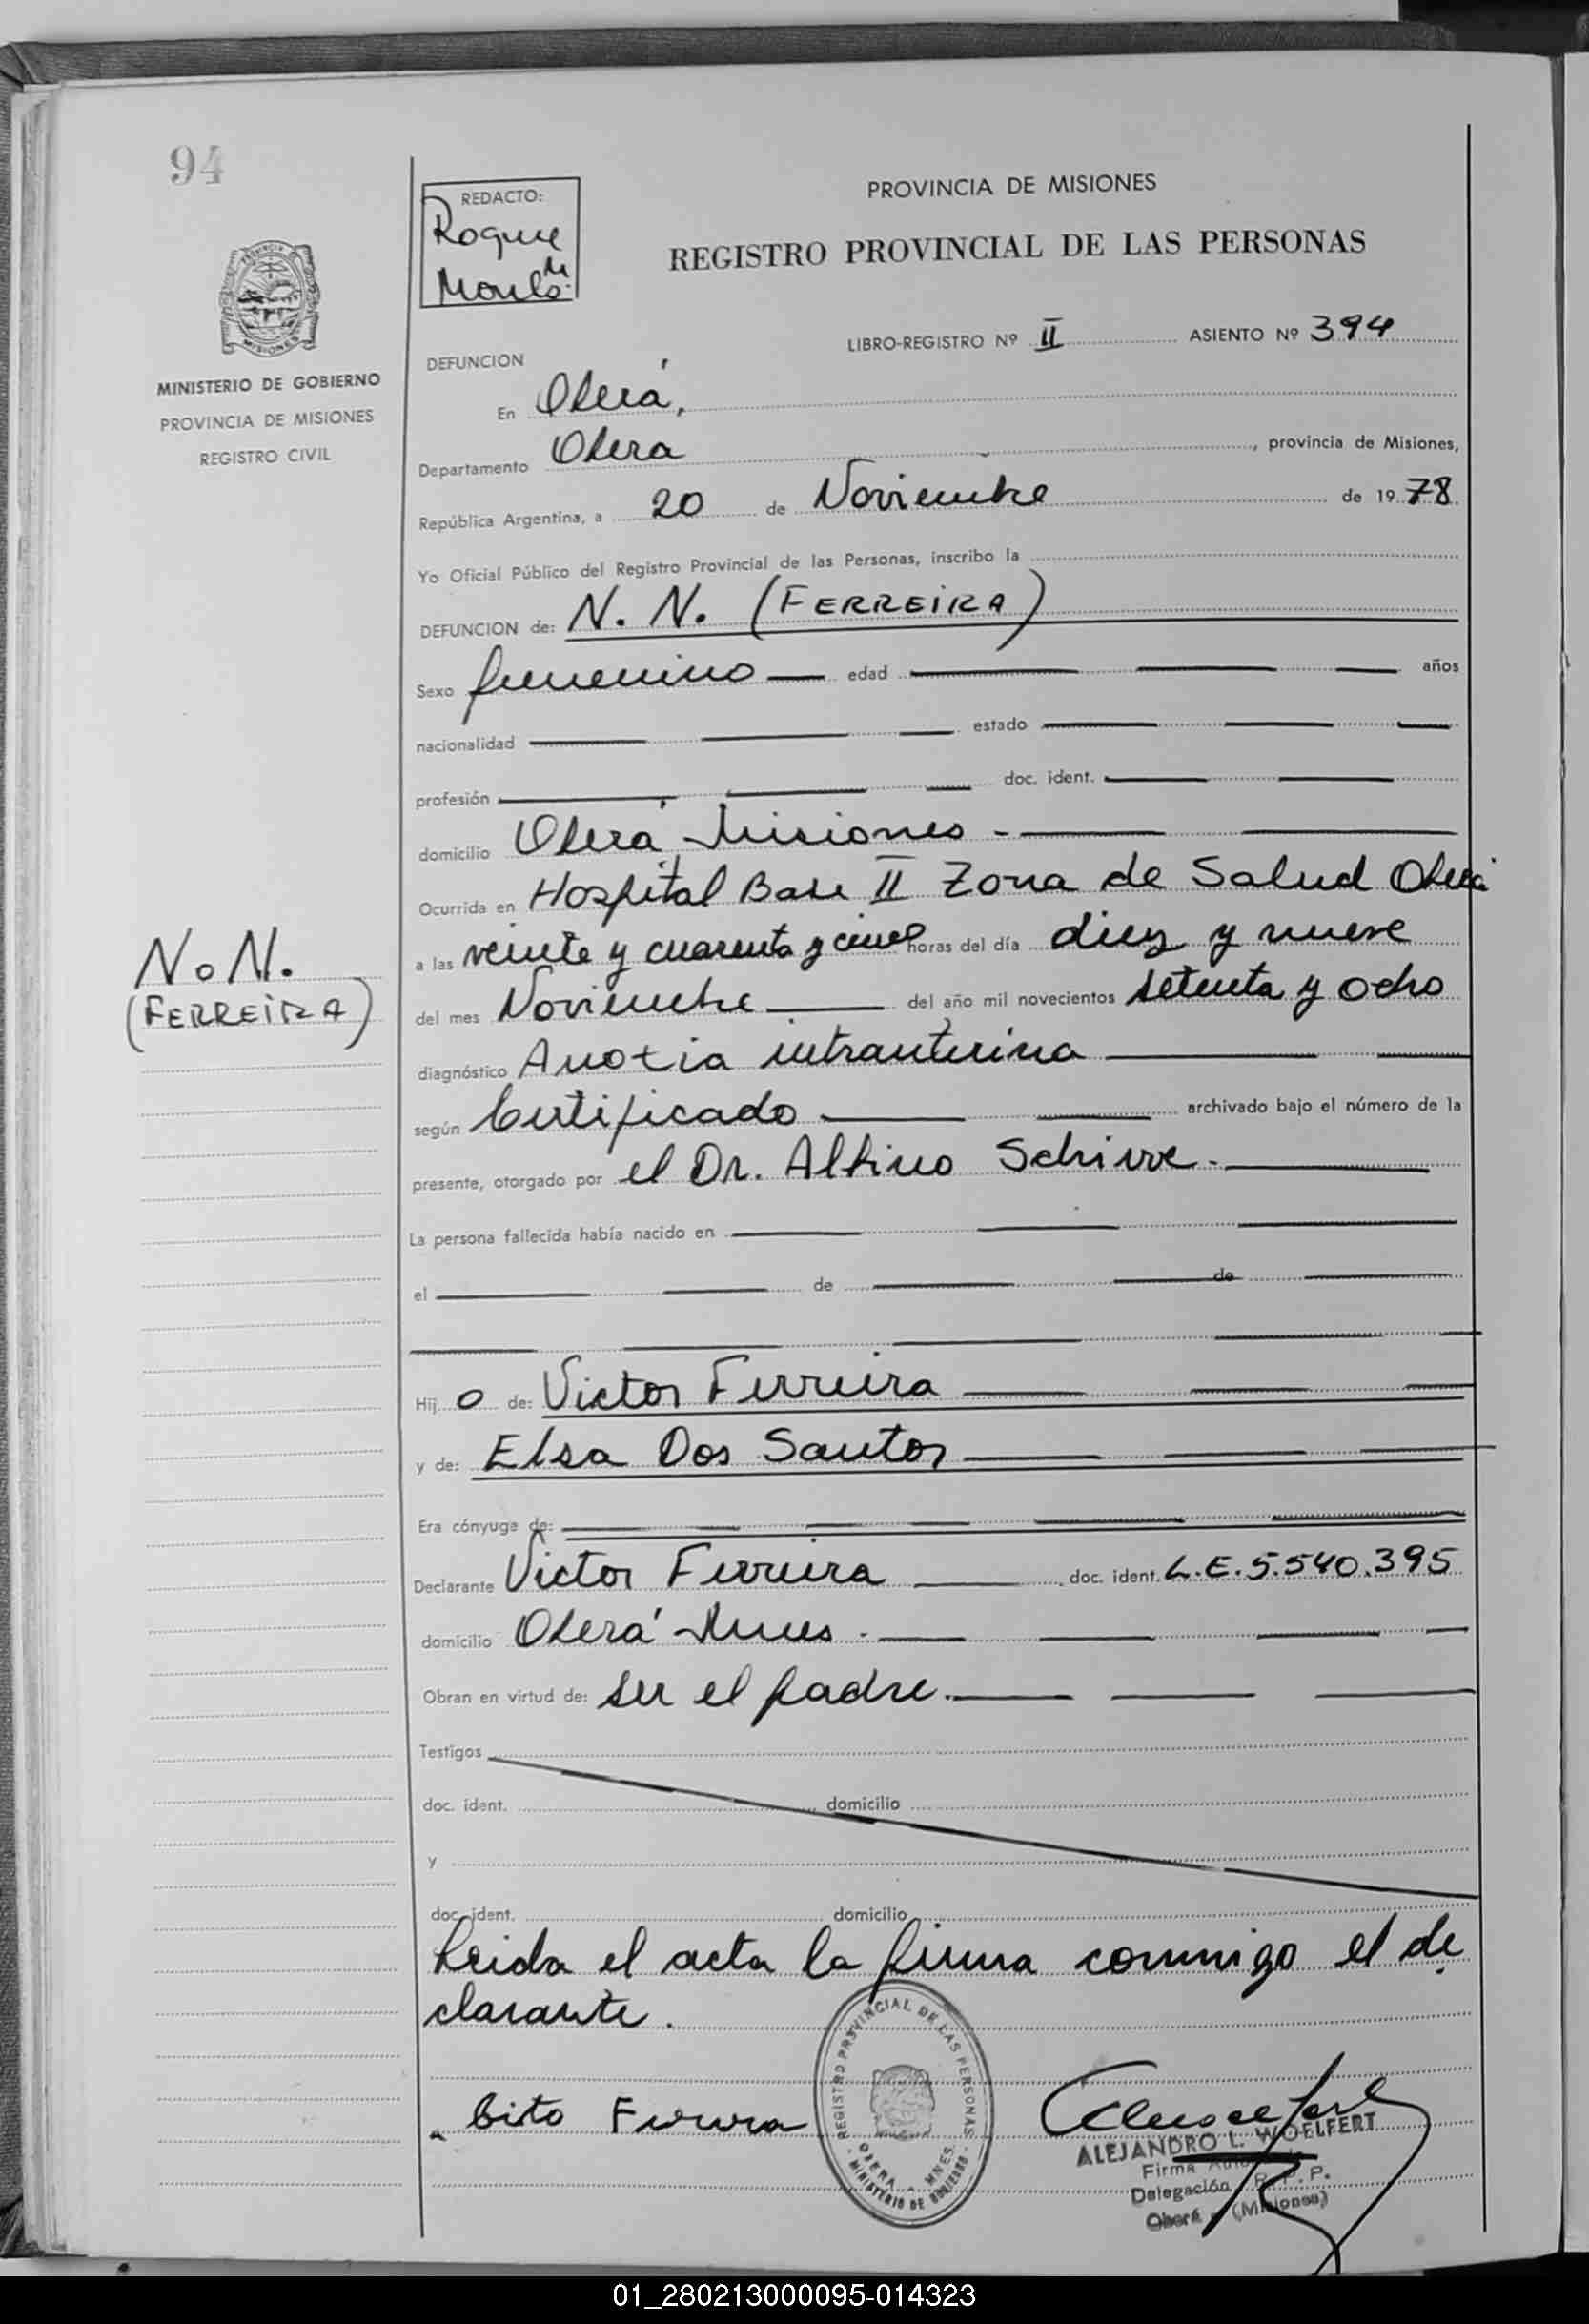 94
REDACTO:
Roque
M.
PROVINCIA DE MISIONES
REGISTRO PROVINCIAL DE LAS PERSONAS
MISIONES
MINISTERIO DE GOBIERNO
PROVINCIA DE MISIONES
REGISTRO CIVIL
LIBRO-REGISTRO Nº II ASIENTO Nº 394
DEFUNCION
En Oberá,
Departamento Obera, provincia de Misiones,
República Argentina, a 20 de Noviembre de 1978
Yo Oficial Público del Registro Provincial de las Personas, inscribo la
DEFUNCION de: N. N. (FERREiRA)
Sexo femenino edad años
nacionalidad estado
profesión doc. ident.
domicilio Oberá Misiones -
Ocurrida en Hospital Base II Zona de Salud Oberá
a las veinte y cuarenta y cinco horas del día diez y nueve
del mes Noviembre del año mil novecientos setenta y ocho
N. N.
(FERREiRA)
diagnóstico Anoxia intrauterina
según Certificado archivado bajo el número de la
presente, otorgado por el Dr. Albino Schirve.
La persona fallecida había nacido en
el de de
Hij o de: Victor Ferreira
y de: Elsa Dos Santos
Era cónyuge de:
Declarante Victor Ferreira doc. ident. L.E. 5.540.395
domicilio Oberá Mnes.
Obran en virtud de: ser el padre.
Testigos
doc. ident. domicilio
y
doc. ident. domicilio
Leida el acta la firma conmigo el de
clarante.
REGISTRO PROVINCIAL DE LAS PERSONAS
OBERA - MNES.
MINISTERIO DE GOBIERNO
ALEJANDRO L. WOELFERT
Firma
Delegación R. P. P.
Oberá - (Misiones)
01_280213000095-014323